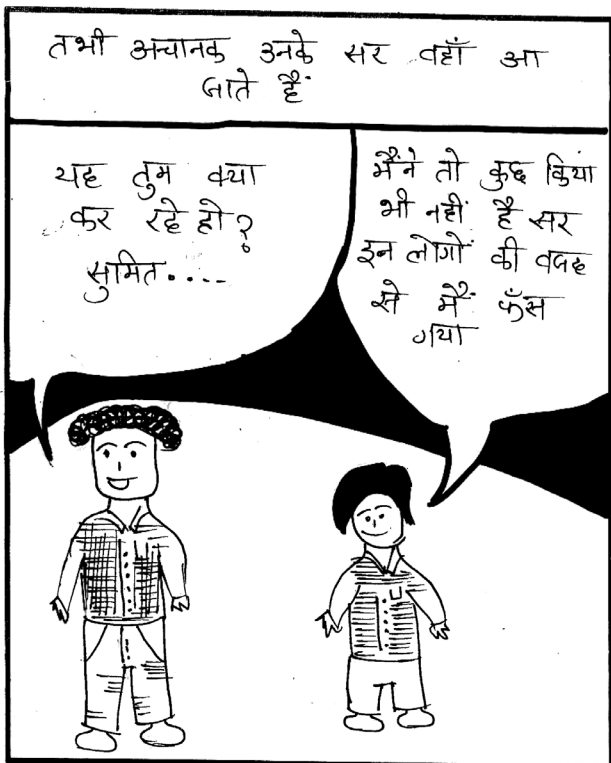 तभी अचानक उनके सर वहाँ आ
जाते हैं
यह तुम क्या
कर रहे हो?
सुमित....
मैंने तो कुछ किया
भी नहीं है सर
इन लोगों की वजह
से मैं फँस
गया